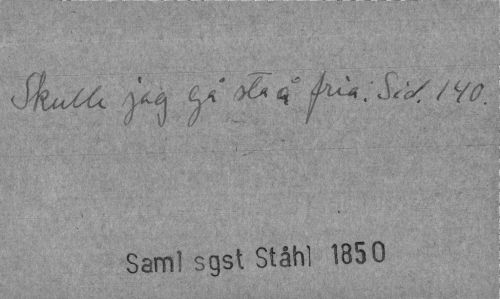 Skulle jag gå sta å fria. Sid. 140.
Saml sgst Ståhl 1850